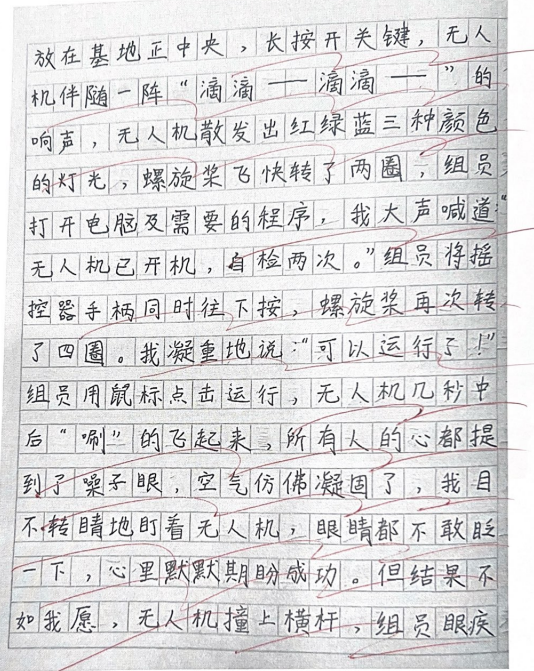 放在基地正中央，长按开关键，无人
机伴随一阵“滴滴——滴滴——”的
响声，无人机散发出红绿蓝三种颜色
的灯光，螺旋桨飞快转了两圈，组员
打开电脑及需要的程序，我大声喊道“
无人机已开机，自检两次。”组员将摇
控器手柄同时往下按，螺旋桨再次转
了四圈。我凝重地说：“可以运行了！”
组员用鼠标点击运行，无人机几秒中
后“唰”的飞起来，所有人的心都提
到了嗓子眼，空气仿佛凝固了，我目
不转睛地盯着无人机，眼睛都不敢眨
一下，心里默默期盼成功。但结果不
如我愿，无人机撞上横杆，组员眼疾